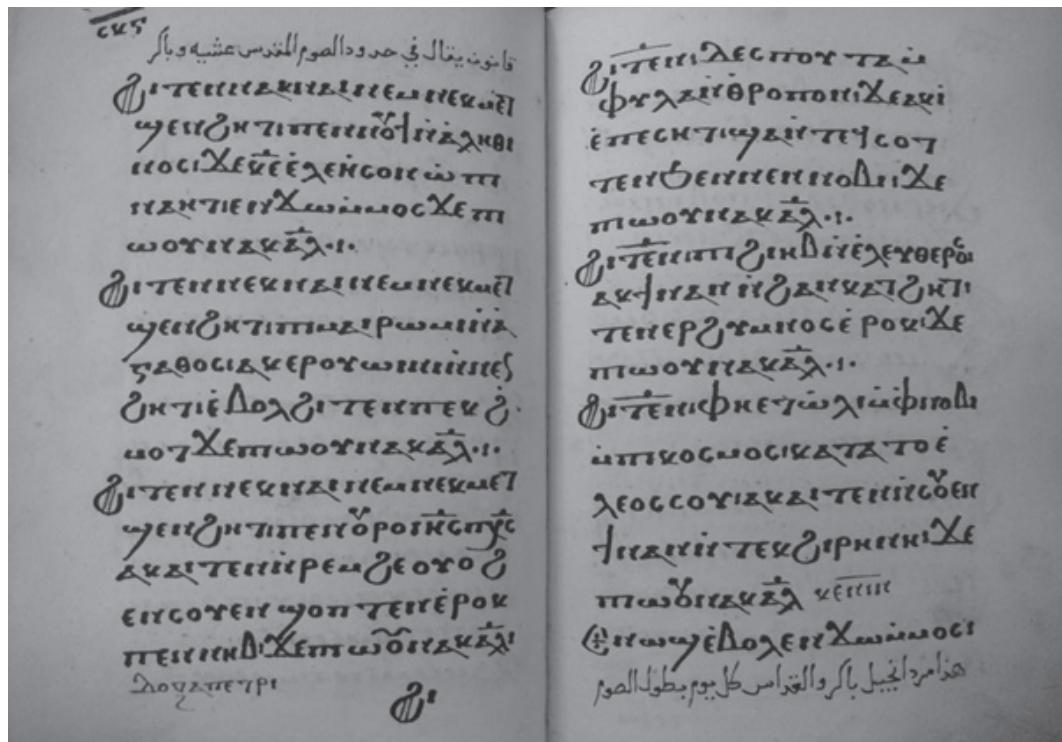 ⲥⲕⲋ
قانون يقال في حدود الصوم المقدس عشيه وباكر
ϩⲓⲧⲉⲛⲛⲁⲕⲛⲁⲓⲛⲉⲙⲛⲉⲕⲙⲉⲧ̅
ϣⲉⲛϩⲏⲧⲓⲡⲉⲛⲛⲟⲩϯⲛ̀ⲁⲗⲏⲑⲓ
ⲛⲟⲥⲓϫⲉⲕ̅ⲉ̅ⲉ̀ⲗⲉⲏ̀ⲥⲟⲛⲱ̀ⲡⲓ
ⲛⲁⲏⲧⲓⲉⲛϫⲱⲙ̀ⲙⲟⲥϫⲉⲡⲓ
ⲱⲟⲩⲛⲁⲕⲁ̅ⲗ̅·ⲓ·
ϩⲓⲧⲉⲛⲛⲉⲕⲛⲁⲓⲛⲉⲙⲛⲉⲕⲙⲉⲧ̅
ϣⲉⲛϩⲏⲧⲓⲡⲓⲙⲁⲓⲣⲱⲙⲓⲛ̀ⲁ
ⲅⲁⲑⲟⲥⲓⲁⲕⲉⲣⲟⲩⲱⲓⲛⲓⲛ̀ⲛⲉϩ
ϩⲏⲧⲓⲉ̀ⲃⲟⲗϩⲓⲧⲉⲛⲡⲉⲕϩ̀
ⲙⲟⲧϫⲉⲡⲓⲱⲟⲩⲛⲁⲕⲁ̅ⲗ̅·ⲓ·
ϩⲓⲧⲉⲛⲛⲉⲕⲛⲁⲓⲛⲉⲙⲛⲉⲕⲙⲉⲧ̅
ϣⲉⲛϩⲏⲧⲓⲡⲉⲛⲟⲩⲣⲟⲓⲏ̅ⲥ̅ⲡⲭ̅ⲥ̅
ⲁⲕⲁⲓⲧⲉⲛⲛ̀ⲣⲉⲙϩⲉⲟⲩⲟϩ
ⲉⲛⲥⲟⲩⲉⲛϣⲟⲡⲧⲉⲛⲉ̀ⲣⲟⲕ
ⲡⲉⲛⲛⲏⲃⲓϫⲉⲡⲓⲱⲟⲩⲛⲁⲕⲁ̅ⲗ̅ⲓ
ϩⲓ
ϩⲓⲧ̅ⲉ̅ⲛ̅ⲓⲗⲉⲥⲡⲟⲩⲧⲁⲙ̀
ⲫⲩⲗⲁⲛ̀ⲑⲣⲟⲡⲟⲛⲓϫⲉⲁⲕⲓ̀
ⲉ̀ⲡⲉⲥⲏⲧⲓϣⲁⲛⲧⲉϥⲥⲟⲧ
ⲧⲉⲛϧⲉⲛⲛⲉⲛⲛⲟⲃⲓⲓϫⲉ
ⲡⲓⲱⲟⲩⲛⲁⲕⲁ̅ⲗ̅·ⲓ·
ϩⲓⲧ̅ⲉ̅ⲛ̅ⲡⲓϩⲓⲛⲃⲓⲛ̀ⲉⲗⲉⲩⲑⲉⲣⲟⲥⲓ
ⲁⲕϯⲛⲁⲛⲛ̀ϩⲁⲛⲕⲁⲧ̅ϩⲏⲧⲓ
ⲧⲉⲛⲉⲣϩⲩⲙⲛⲟⲥⲉ̀ⲣⲟⲕⲓϫⲉ
ⲡⲓⲱⲟⲩⲛⲁⲕⲁ̅ⲗ̅·ⲓ·
ϩⲓⲧ̅ⲉ̅ⲛ̅ⲓⲫⲏⲉⲧⲱ̀ⲗⲓⲙ̀ⲫⲛⲟⲃⲓ
ⲙ̀ⲡⲓⲕⲟⲥⲙⲟⲥⲓⲕⲁⲧⲁⲧⲟⲉ̀
ⲗⲉⲟⲥⲥⲟⲩⲓⲁⲕⲁⲓⲧⲉⲛⲛ̀ⲥⲟⲩⲉⲛ
ϯⲛⲁⲛⲛ̀ⲧⲉⲕϩⲓⲣⲏⲛⲏⲓϫⲉ
ⲡⲓⲱⲟⲩⲛⲁⲕⲁ̅ⲗ̅ ⲕⲉⲛⲓⲛ
Ⲉⲛⲱϣⲉ̀ⲃⲟⲗⲉⲛϫⲱⲙ̀ⲙⲟⲥⲓ
هذا مرد انجيل باكر والقداس كل يوم بطول الصوم